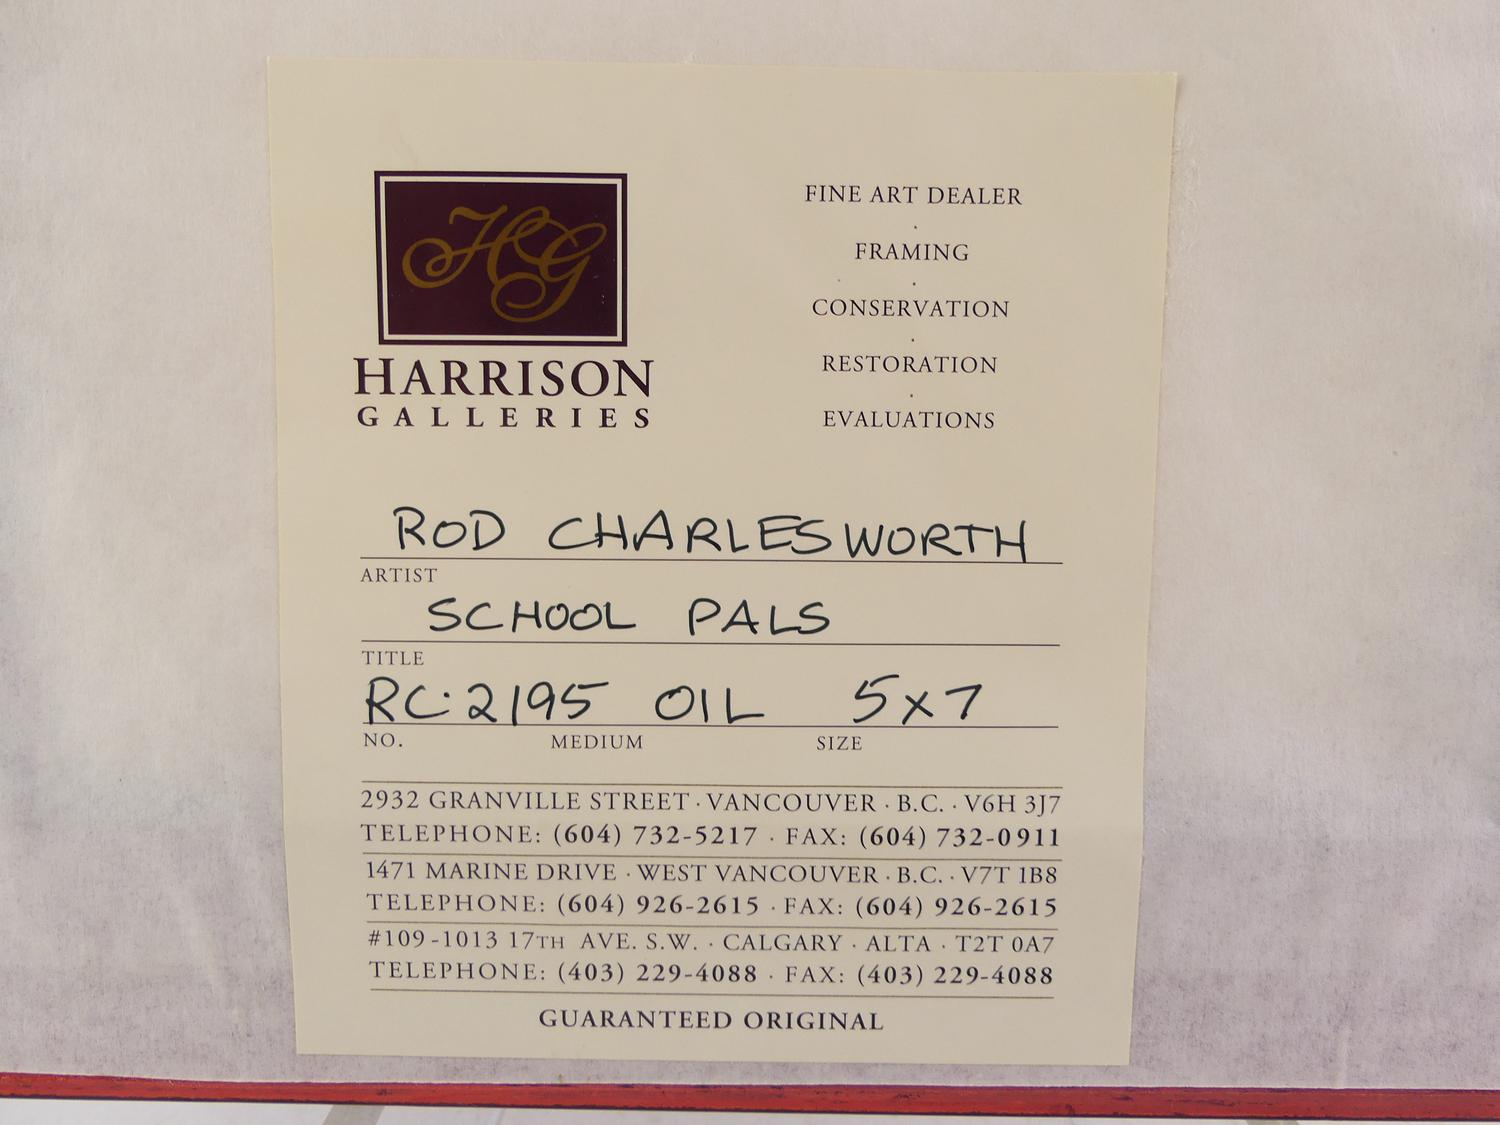 HG
HARRISON
GALLERIES
FINE ART DEALER
·
FRAMING
·
CONSERVATION
·
RESTORATION
·
EVALUATIONS
ROD CHARLESWORTH
ARTIST
SCHOOL PALS
TITLE
RC·2195 OIL 5x7
NO. MEDIUM SIZE
2932 GRANVILLE STREET · VANCOUVER · B.C. · V6H 3J7
TELEPHONE: (604) 732-5217 · FAX: (604) 732-0911
1471 MARINE DRIVE · WEST VANCOUVER · B.C. · V7T 1B8
TELEPHONE: (604) 926-2615 · FAX: (604) 926-2615
#109-1013 17TH AVE. S.W. · CALGARY · ALTA · T2T 0A7
TELEPHONE: (403) 229-4088 · FAX: (403) 229-4088
GUARANTEED ORIGINAL